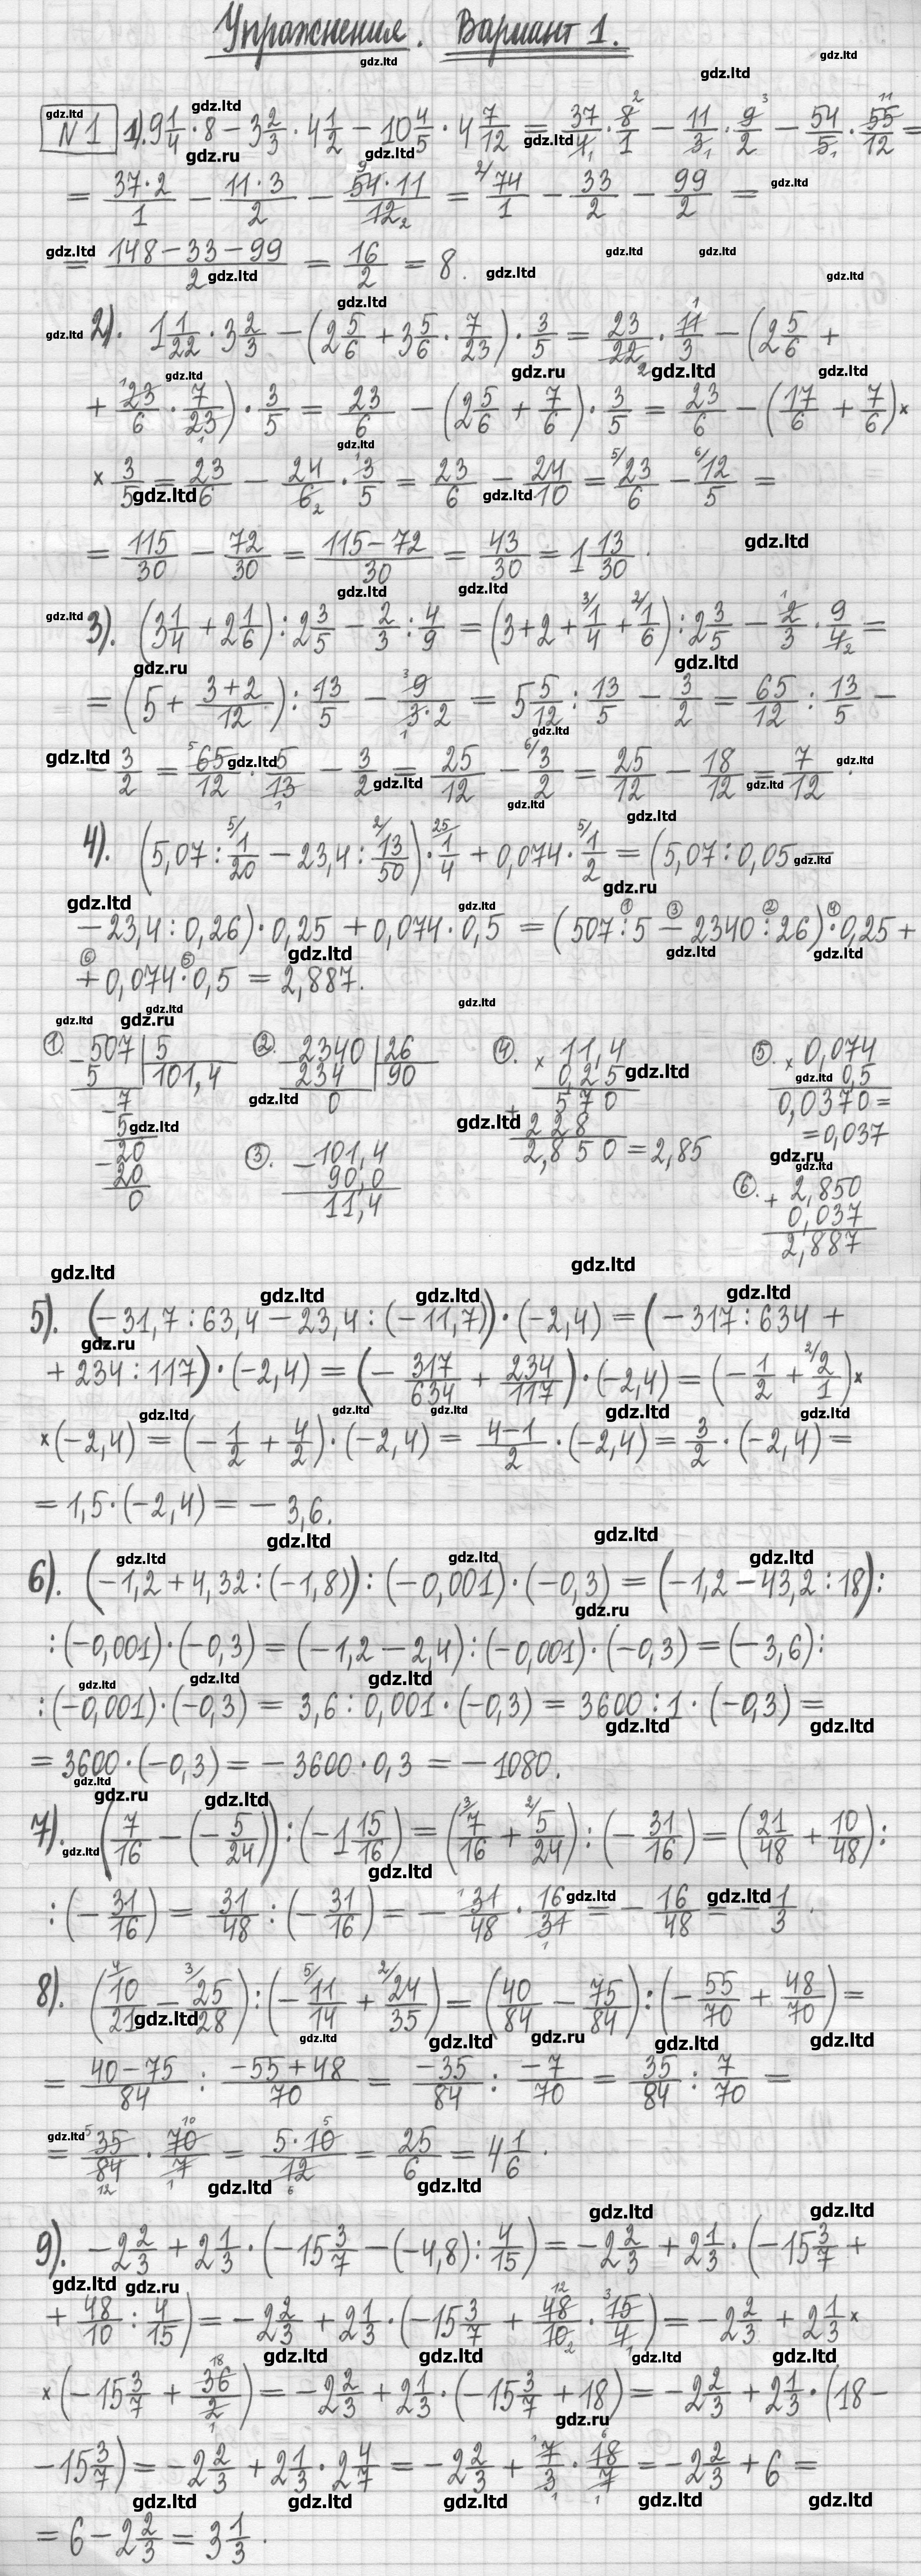 Упражнения. Вариант 1.
№1 1). 9 1/4 · 8 − 3 2/3 · 4 1/2 − 10 4/5 · 4 7/12 = 37/4 · 8/1 − 11/3 · 9/2 − 54/5 · 55/12 =
= 37·2/1 − 11·3/2 − 54·11/12 = 74/1 − 33/2 − 99/2 =
= (148−33−99)/2 = 16/2 = 8.
2). 1 1/22 · 3 2/3 − (2 5/6 + 3 5/6 · 7/23) · 3/5 = 23/22 · 11/3 − (2 5/6 +
+ 23/6 · 7/23) · 3/5 = 23/6 − (2 5/6 + 7/6) · 3/5 = 23/6 − (17/6 + 7/6) ×
× 3/5 = 23/6 − 24/6 · 3/5 = 23/6 − 24/10 = 23/6 − 12/5 =
= 115/30 − 72/30 = (115−72)/30 = 43/30 = 1 13/30.
3). (3 1/4 + 2 1/6) : 2 3/5 − 2/3 : 4/9 = (3+2+ 1/4 + 1/6) : 2 3/5 − 2/3 · 9/4 =
= (5 + (3+2)/12) : 13/5 − 9/(3·2) = 5 5/12 : 13/5 − 3/2 = 65/12 : 13/5 −
− 3/2 = 65/12 · 5/13 − 3/2 = 25/12 − 3/2 = 25/12 − 18/12 = 7/12.
4). (5,07 : 1/20 − 23,4 : 13/50) · 1/4 + 0,074 · 1/2 = (5,07 : 0,05 −
− 23,4 : 0,26) · 0,25 + 0,074 · 0,5 = (507 : 5 − 2340 : 26) · 0,25 +
+ 0,074 · 0,5 = 2,887.
①. 507 | 5
5 101,4
−7
5
−20
20
0
②. 2340 | 26
234 90
0
③. −101,4
90,0
11,4
④. × 11,4
0,25
+ 570
228
2,850 = 2,85
⑤. × 0,074
0,5
0,0370 =
= 0,037
⑥. + 2,850
0,037
2,887
5). (−31,7 : 63,4 − 23,4 : (−11,7)) · (−2,4) = (−317 : 634 +
+ 234 : 117) · (−2,4) = (− 317/634 + 234/117) · (−2,4) = (− 1/2 + 2/1) ×
× (−2,4) = (− 1/2 + 4/2) · (−2,4) = (4−1)/2 · (−2,4) = 3/2 · (−2,4) =
= 1,5 · (−2,4) = − 3,6.
6). (−1,2 + 4,32 : (−1,8)) : (−0,001) · (−0,3) = (−1,2 − 43,2 : 18) :
: (−0,001) · (−0,3) = (−1,2 − 2,4) : (−0,001) · (−0,3) = (−3,6) :
: (−0,001) · (−0,3) = 3,6 : 0,001 · (−0,3) = 3600 : 1 · (−0,3) =
= 3600 · (−0,3) = − 3600 · 0,3 = − 1080.
7). (7/16 − (− 5/24)) : (−1 15/16) = (7/16 + 5/24) : (− 31/16) = (21/48 + 10/48) :
: (− 31/16) = 31/48 : (− 31/16) = − 31/48 · 16/31 = − 16/48 = − 1/3.
8). (10/21 − 25/28) : (− 11/14 + 24/35) = (40/84 − 75/84) : (− 55/70 + 48/70) =
= (40−75)/84 : (−55+48)/70 = −35/84 : −7/70 = 35/84 : 7/70 =
= 35/84 · 70/7 = 5·10/12 = 25/6 = 4 1/6.
9). −2 2/3 + 2 1/3 · (−15 3/7 − (−4,8) : 4/15) = −2 2/3 + 2 1/3 · (−15 3/7 +
+ 48/10 : 4/15) = −2 2/3 + 2 1/3 · (−15 3/7 + 48/10 · 15/4) = −2 2/3 + 2 1/3 ×
× (−15 3/7 + 36/2) = −2 2/3 + 2 1/3 · (−15 3/7 + 18) = −2 2/3 + 2 1/3 · (18 −
−15 3/7) = −2 2/3 + 2 1/3 · 2 4/7 = −2 2/3 + 7/3 · 18/7 = −2 2/3 + 6 =
= 6 − 2 2/3 = 3 1/3.
gdz.ltd
gdz.ru